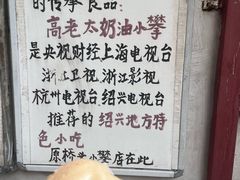 的传承良品:
高老太奶油小攀
是央视财经上海电视台
浙江卫视.浙江影视
杭州电视台.绍兴电视台
推荐的绍兴地方特
色小吃
原桥头小攀店在此